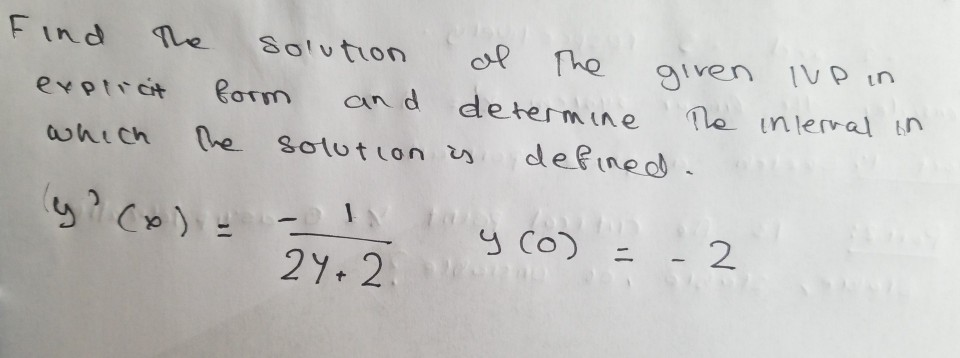 Find The solution of The given IVP in
explicit form and determine The interval in
which The solution is defined.
y'(x) = - 1 / 2y+2 y(0) = -2